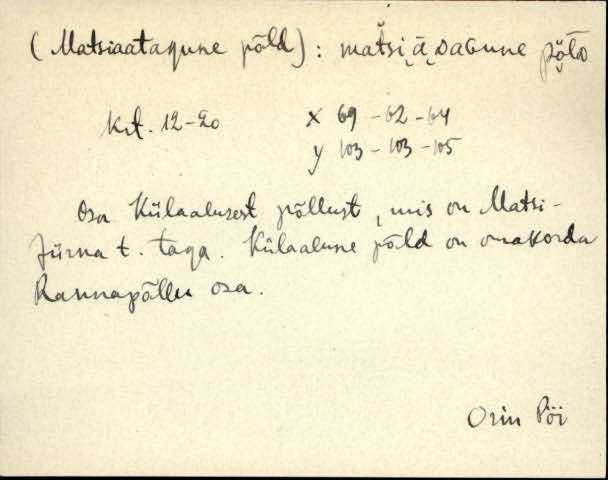 (Matsiaatagune põld) : matši̬ä̬DaGune põ̬lD
Krt. 12-20 X 69 - 62 - 64
y 103 - 103 - 105
Osa Külaalusest põllust, mis on Matsi-
Jürna t. taga. Külaalune põld on omakorda
Rannapõllu osa.
Orin Pöi